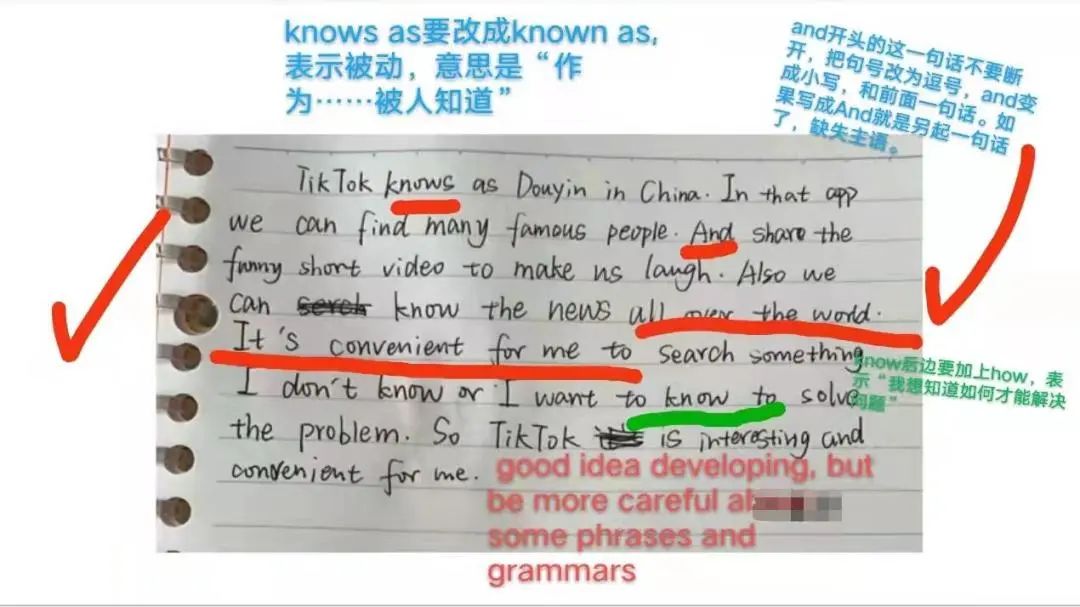 knows as要改成known as,
表示被动，意思是“作
为……被人知道”
and开头的这一句话不要断
开，把句号改为逗号，and变
成小写，和前面一句话。如
果写成And就是另起一句话
了，缺失主语。
TikTok knows as Douyin in China. In that app
we can find many famous people. And share the
funny short video to make us laugh. Also we
can serch know the news all over the world.
It's convenient for me to search something
I don't know or I want to know to solve
the problem. So TikTok is interesting and
convenient for me.
know后边要加上how，表
示“我想知道如何才能解决
问题”
good idea developing, but
be more careful
some phrases and
grammars